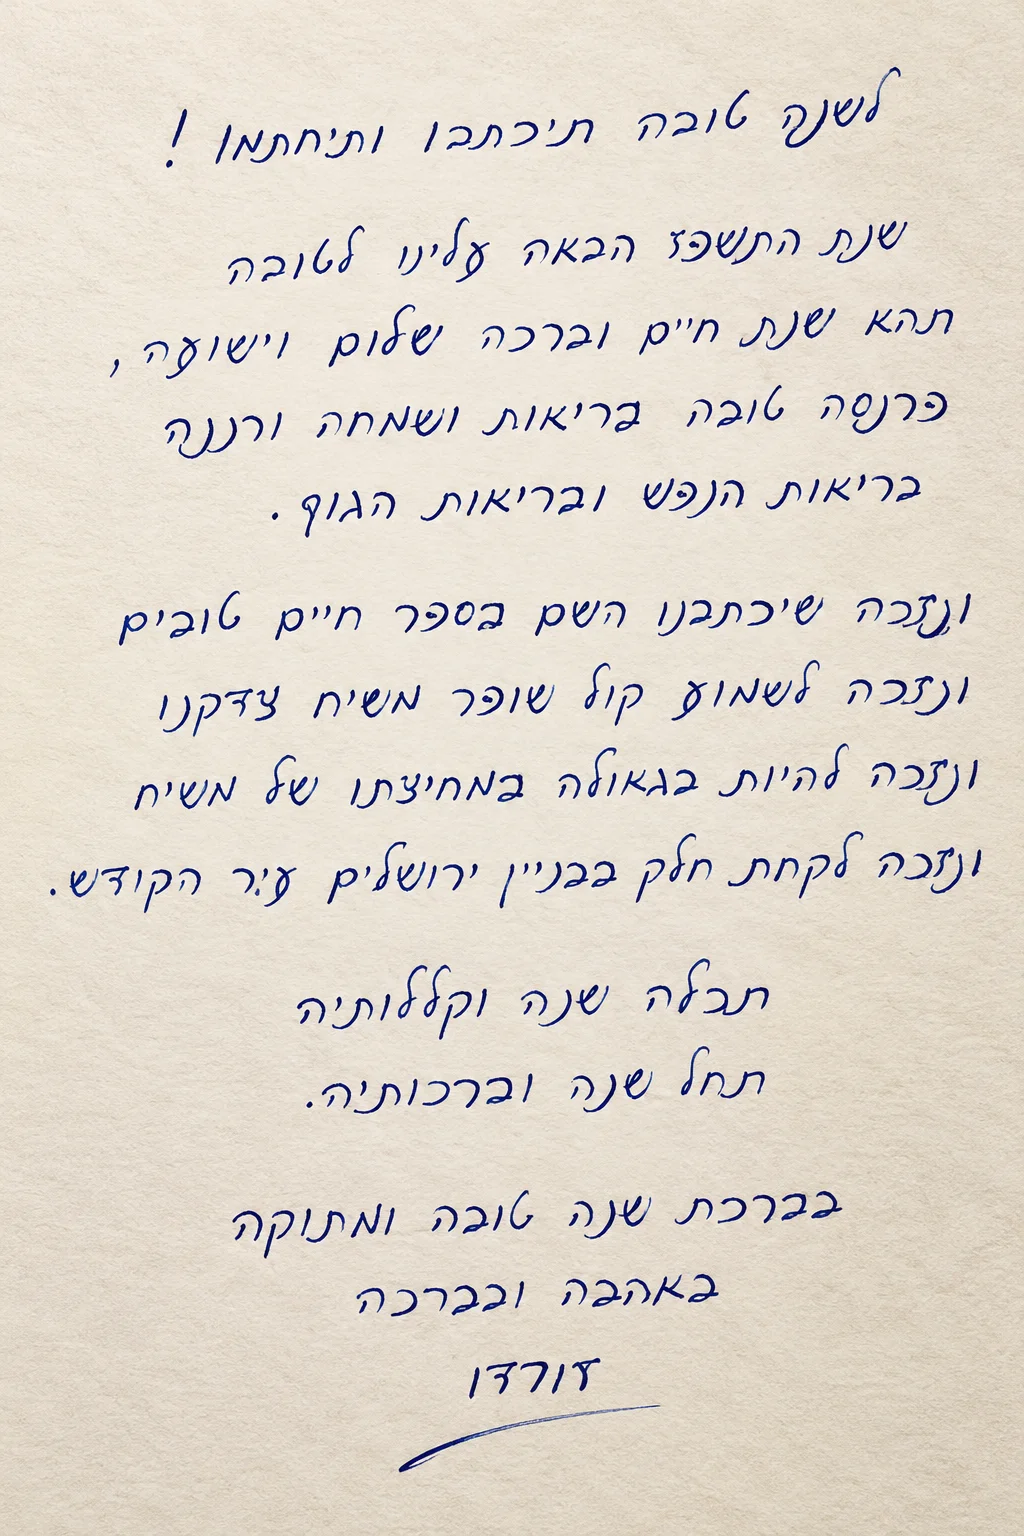 לשנה טובה תיכתבו ותיחתמו !
שנת התשפז הבאה עלינו לטובה
תהא שנת חיים וברכה שלום וישועה,
פרנסה טובה בריאות ושמחה ורננה
בריאות הנפש ובריאות הגוף.
ונזכה שיכתבנו השם בספר חיים טובים
ונזכה לשמוע קול שופר משיח צדקנו
ונזכה להיות בגאולה במחיצתו של משיח
ונזכה לקחת חלק בבניין ירושלים עיר הקודש.
תכלה שנה וקללותיה
תחל שנה וברכותיה.
בברכת שנה טובה ומתוקה
באהבה ובברכה